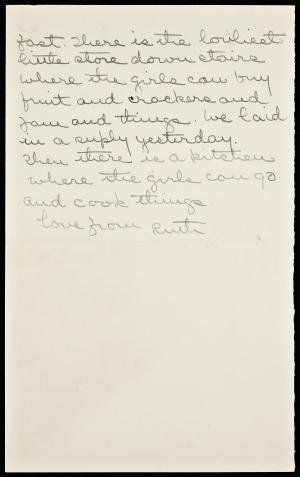 fast. There is the lovliest
little store down stairs
where the girls can buy
fruit and crackers and
jam and things. We laid
in a suply yesterday.
Then there is a kitchen
where the girls can go
and cook things.
Love from Ruth